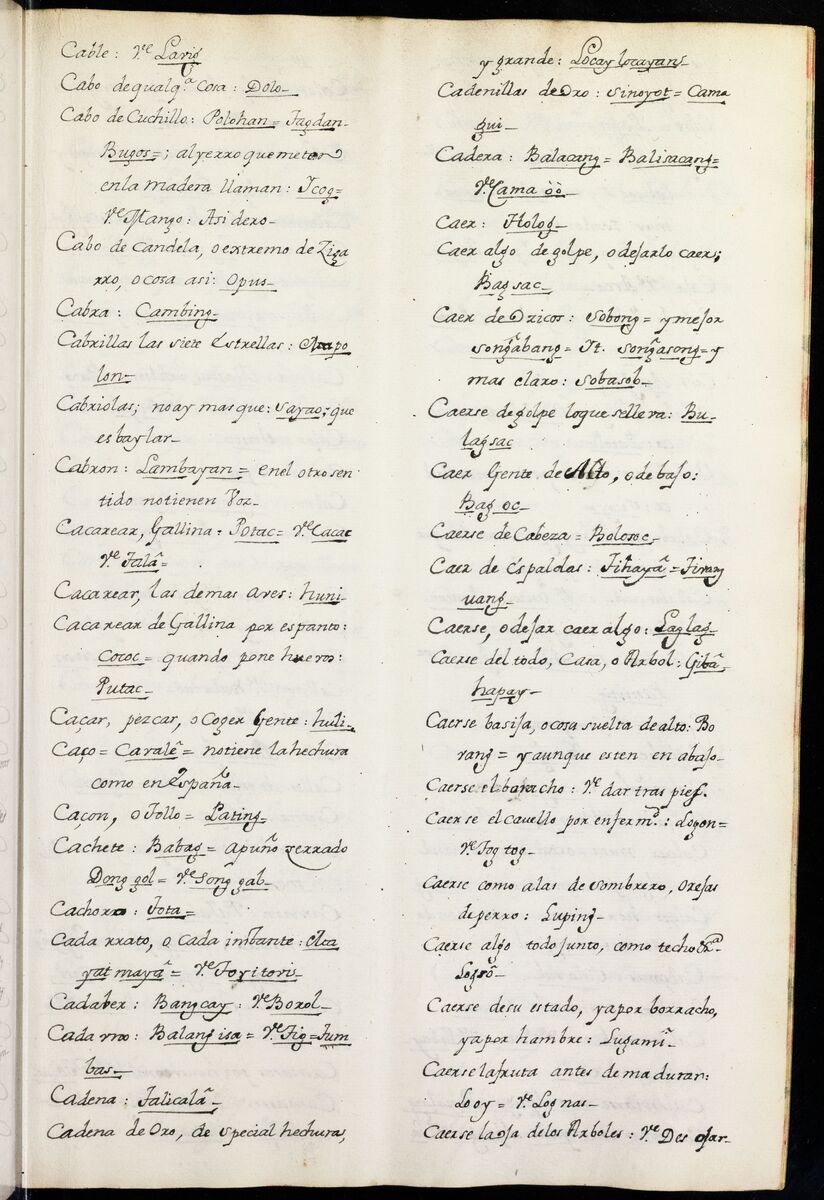 Cable: Ve. Lavig
Cabo de qualq.a Cosa: Dolo_
Cabo de Cuchillo: Polohan = Tagdan_
Bugos =; al yerro que meten
en la madera llaman: Icog =
Ve. Mango: Asidero_
Cabo de Candela, o extremo de Ziga
rro, o cosa asi: Opus_
Cabra: Cambing_
Cabrillas las siete Estrellas: Mapo
lon_
Cabriolas; no ay mas que: Sayao; que
es baylar_
Cabron: Lambayan = en el otro sen
tido no tienen Voz_
Cacarear, Gallina = Potac = Ve. Cacac
Ve. Talã_
Cacarear, las demas aves: huni_
Cacarear de Gallina por espanto:
Cococ = quando pone huevos:
Putac_
Caçar, pezcar, o Coger Gente: huli_
Caço = Cavalẽ = no tiene la hechura
como en España_
Caçon, o Tollo = Pating_
Cachete: Babag = a puño zerrado
Dong gol = Ve. Song gab_
Cachorro: Tota =
Cada rrato, o cada instante:
yat mayã = Ve. Toyitori_
Cadaber: Bangcay: Ve. Borol_
Cada vno: Balang isa = Ve. Tig = Tum
bas_
Cadena: Talicalã_
Cadena de Oro, de special hechura,
y grande: Locay locayans
Cadenillas de Oro: Sinoyot = Cama
gui_
Cadera: Balacang = Balisacang =
Ve. Cama öö_
Caer: Holog_
Caer algo de golpe, o dejarlo caer;
Bagsac_
Caer de Ozicos: Sobong = y mejor
songãbang = It. songãsong = y
mas claro: Sobasob_
Caerse de golpe lo que se lleva: Bu_
lagsac
Caer Gente de Alto, o de bajo:
Bag oc_
Caerse de Cabeza = Bolosoc_
Caer de espaldas: Tihayã = Tivang
uang_
Caerse, o dejar caer algo: Laglag_
Caerse del todo, Casa, o Arbol: Gibã_
hapay_
Caerse basija, o cosa suelta de alto: Bo
rang = y aunque esten en abajo_
Caerse el boracho: Ve. dar tras pies.
Caerse el cavello por enferm.d: Logon =
Ve. Tog tog_
Caerse como alas de Sombrero, orejas
de perro: Luping_
Caerse algo todo junto, como techo &.a
Logsõ_
Caerse de su estado, ya por borracho,
ya por hambre: Lugamĩ_
Caerse la fruta antes de madurar:
Looy = Ve. Lognas_
Caerse la oja de los Arboles: Ve. Des ojar_